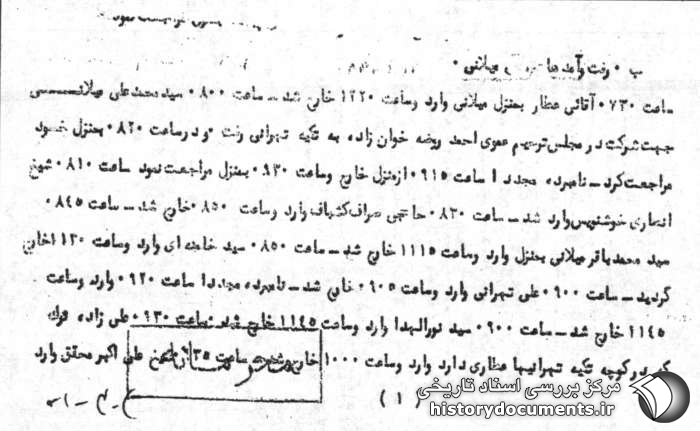 ب • رفت وآمدها میلانی •
ساعت ۰۷۳۰ آقائی عطار بمنزل میلانی وارد وساعت ۱۲۲۰ خارج شد ــ ساعت ۰۸۰۰ سید محمدعلی میلانــــی
جهت شرکت در مجلس ترحیم عموی احمد روضه خوان زاده به تکیه تهرانی رفت و در ساعت ۰۸۲۰ بمنزل خود
مراجعت کرد ــ نامبرده مجددا ساعت ۰۹۱۵ ازمنزل خارج وساعت ۰۹۳۰ بمنزل مراجعت نمود ساعت ۰۸۱۰ شیخ
انصاری خوشنویس وارد شد ــ ساعت ۰۸۳۰ حاجی صراف کشباف وارد وساعت ۰۸۵۰ خارج شد ــ ساعت ۰۸۴۵
سید محمدباقر میلانی بمنزل وارد وساعت ۱۱۱۵ خارج شد ــ ساعت ۰۸۵۰ سید خامنه ای وارد وساعت ۱۱۳۰ خارج
گردید ــ ساعت ۰۹۰۰ علی تهرانی وارد وساعت ۰۹۰۵ خارج شد ــ نامبرده مجددا ساعت ۰۹۲۰ وارد وساعت
۱۱۴۵ خارج شد ــ ساعت ۰۹۰۰ سید نورالهدا وارد وساعت ۱۱۴۵ خارج شد ساعت ۰۹۳۰ علی زاده ترک
که در کوچه تکیه تهرانیها عطاری دارد وارد وساعت ۱۰۰۰ خارج ساعت علی اکبر محقق وارد
( ۱ )
مرکز بررسی اسناد تاریخی
historydocuments.ir